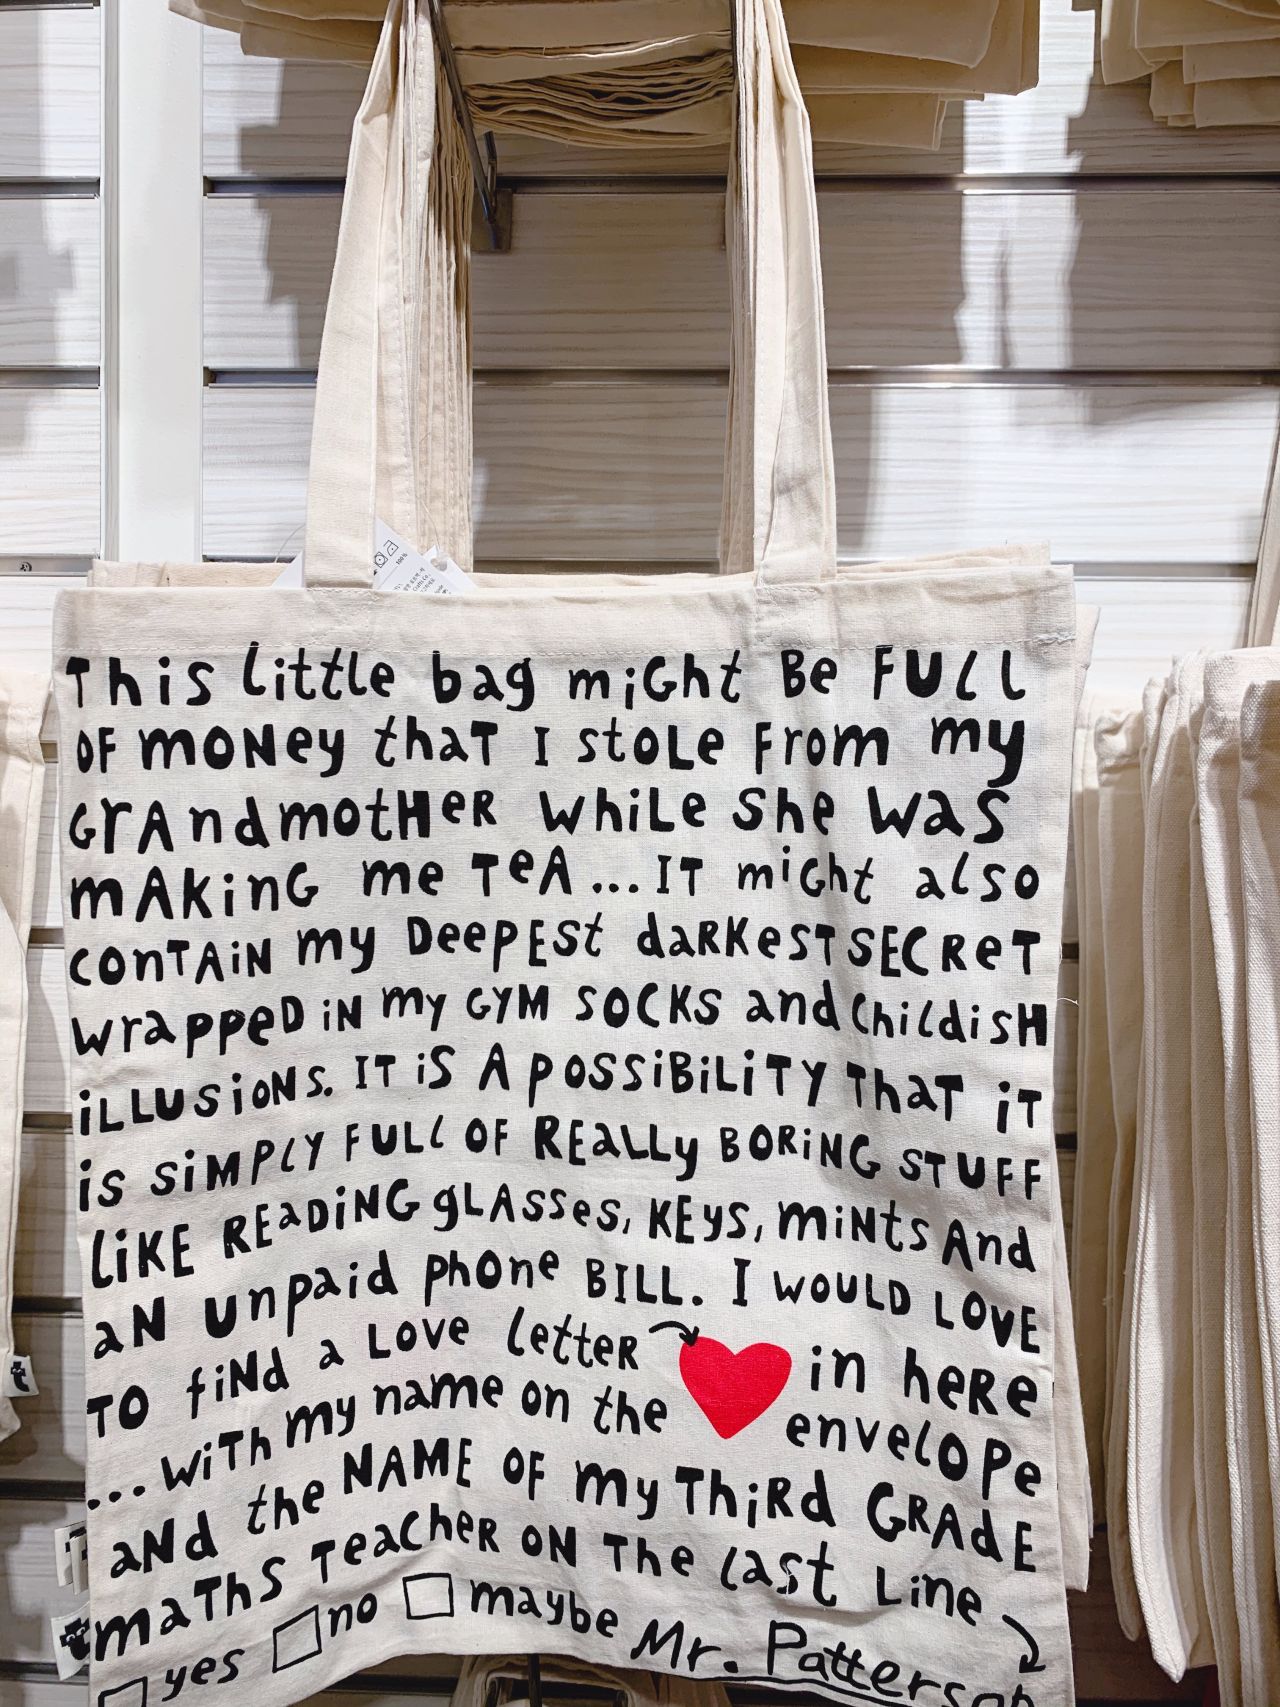 This Little bag miGht Be FULL
OF MONey thaT I stoLe From my
GrAndmotHeR whiLe She Was
mAKinG me TeA...IT might also
conTAiN my DeepESt daRKesT SECReT
wrappeD iN my GYM SOCKS and ChiLdisH
iLLUsioNs. IT iS A POSSiBiLiTY ThaT iT
is siMPLY FULL OF REaLLy BORiNG STUFF
LiKE REaDiNG gLAsses, KEys, miNts And
aN unpaid phone BILL. I WOULD LOVE
TO fiNd a LOVE Letter in heRe
...wiTh my name on the envelope
aNd the NAME OF my ThiRd GRAdE
maThS TeacheR ON The Last Line
yes no maybe Mr. Patterson